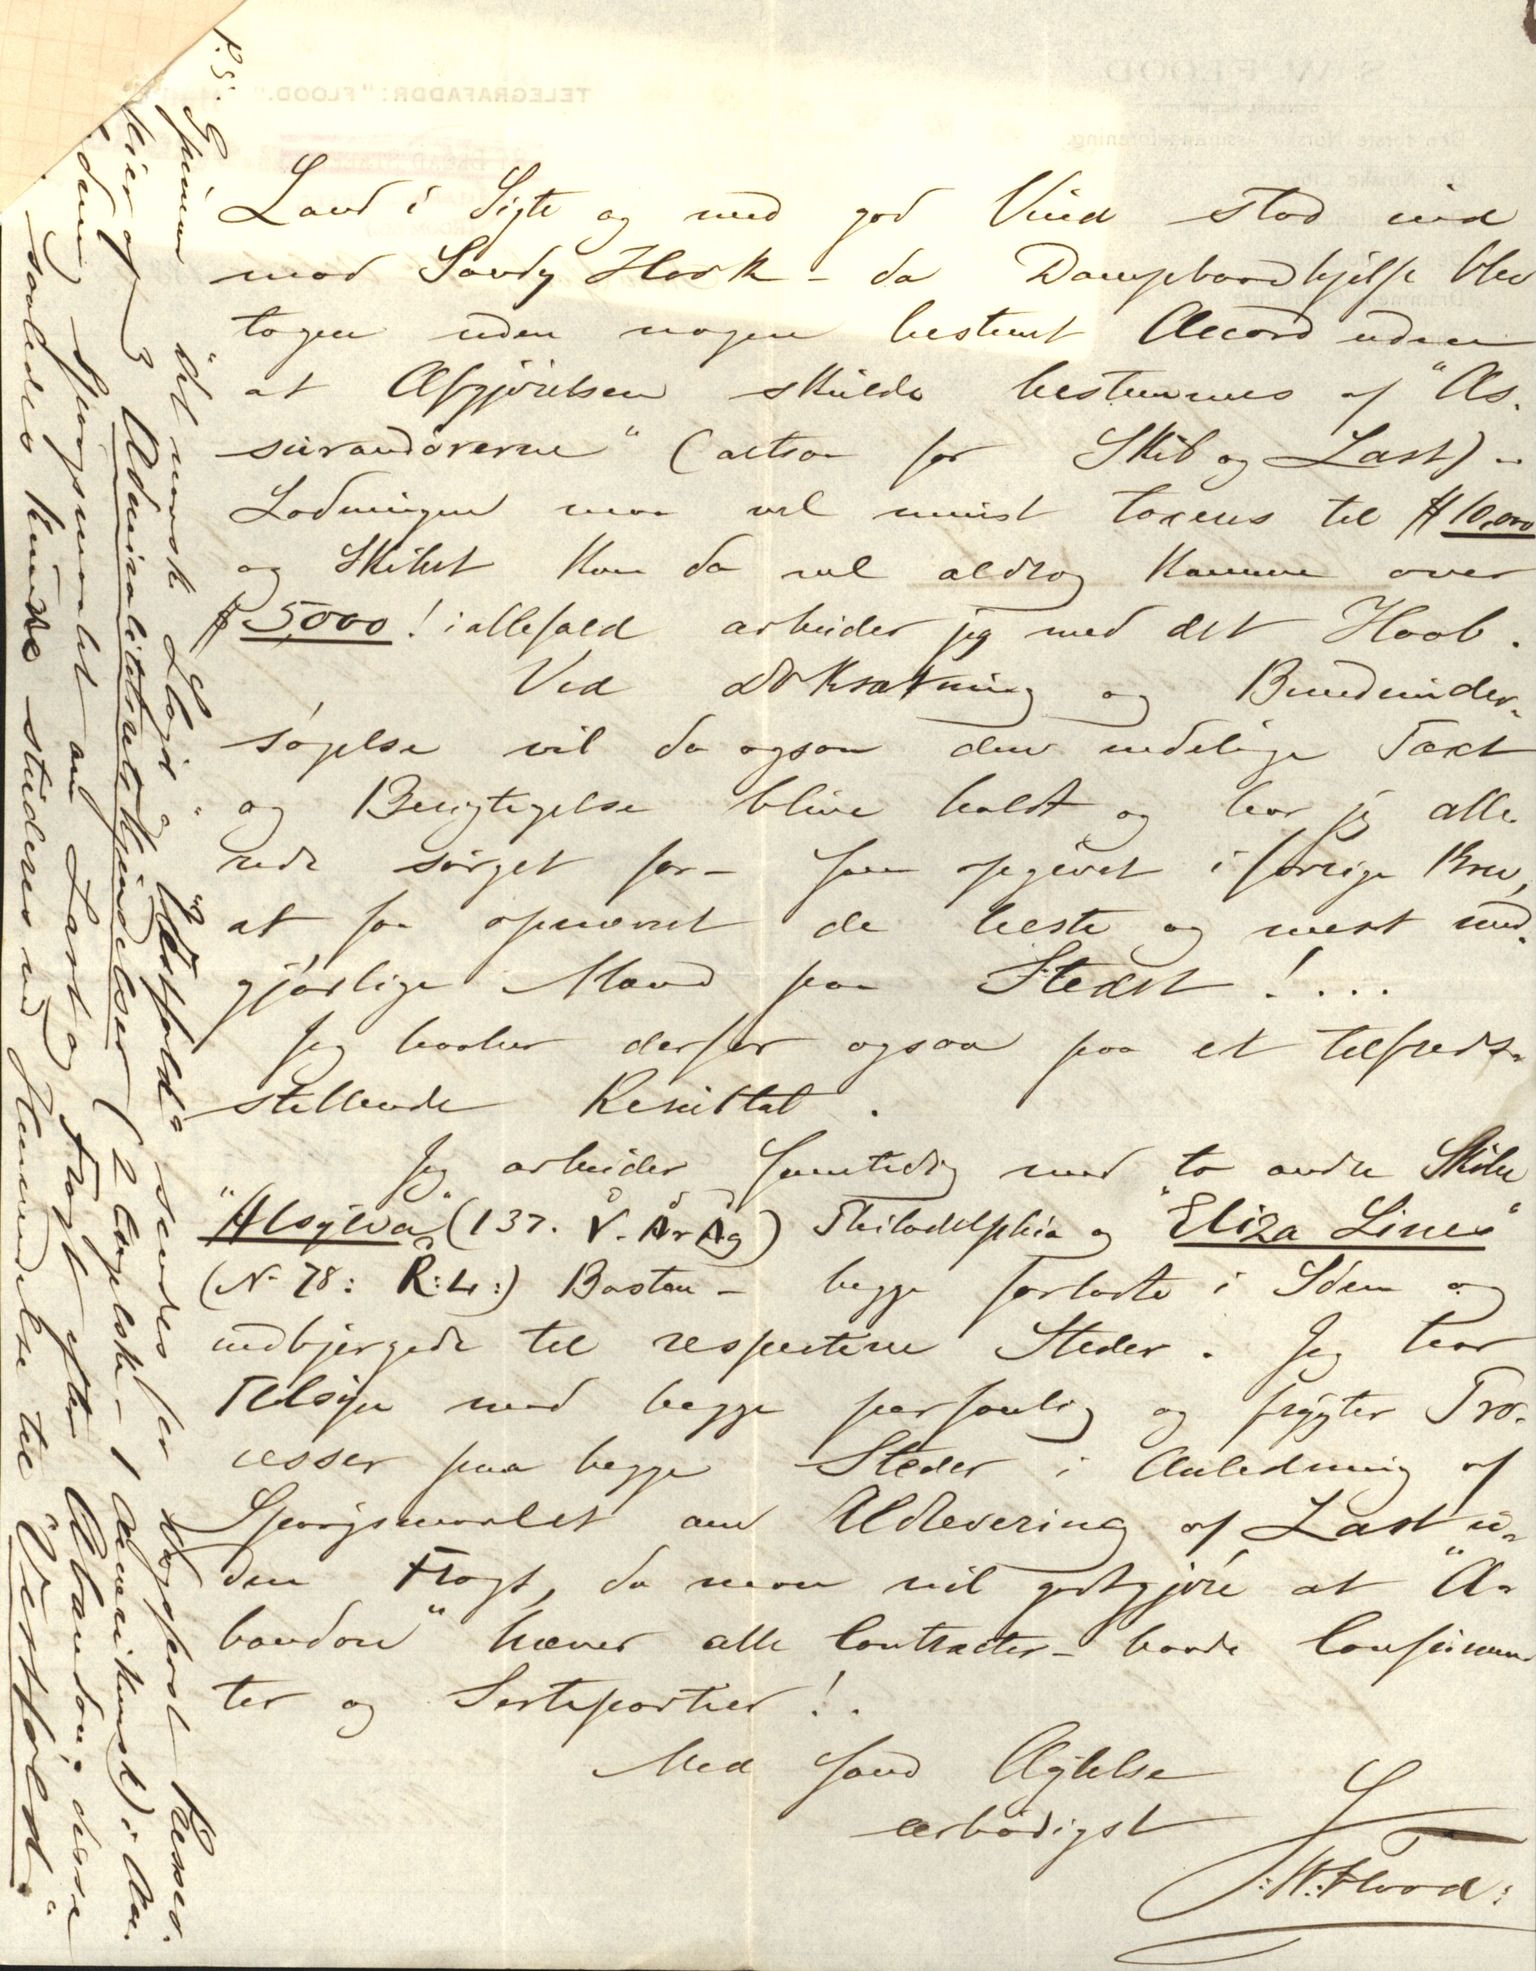 Land i Sigte og med god Vind stod ind
mod Sandy Hook – da Dampbaadhjelp blev
tagen uden nogen bestemt Accord uden
at Afgjørelsen skulde bestemmes af "As-
surandørerne" (altsaa for Skib og Last) –
Ladningen maa vel mindst taxeres til $ 10,000
og Skibet kan da vel aldrig komme over
$ 5,000! iallefald arbeider jeg med det Haab.
Ved Doksætning og Bundunder-
søgelse vil da ogsaa den endelige Taxt
og Besigtigelse blive holdt og har jeg alle-
rede sørget for – som opgivet i forrige Brev,
at faa opnævnt de beste og mest med-
gjørlige Mænd paa Stedet! ...
Jeg haaber derfor ogsaa paa et tilfreds-
stillende Resultat.
Jeg arbeider samtidig med to andre Skibe
"Alsylvia" (137. Å. V. År Åg) Philadelphia og "Eliza Lines"
(No 78: R: L:) Boston – begge forladte i Søen og
indbjergede til respective Steder. Jeg har
Tilsyn med begge personlig og frygter Pro-
cesser paa begge Steder i Anledning af
Spørgsmaalet om Udlevering af Last u-
den Fragt, da man vil godtgjøre at "A-
bandon" hæver alle Contracter – baade Connossemen-
ter og Certepartier!.
Med sand Agtelse
ærbødigst
S: W: Flood:
P.S. Gjennem "det norske Lloyd" "Vestfold" sendes per Dagspost Kjender.
hieraf 3 Admiralitetsretskjendelser (2 engelske – 1 Amerikansk) i An-
ledning Spørgsmaalet om Last og Fragt efter Abandon; disse
saaledes kunde studeres ved Henvendelse til "Vestfold."
TELEGRAFADDR: "FLOOD."
S. W. FLOOD